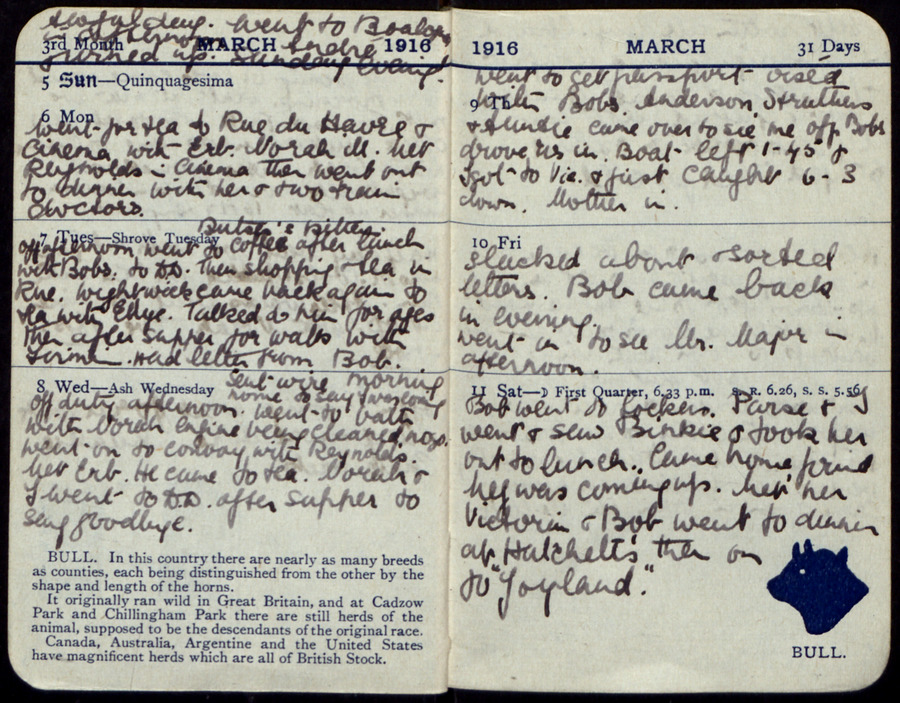 Awful day. Went to Boulogne
in afternoon
3rd Month MARCH 1916
turned up. Sunday Evening!
5 Sun—Quinquagesima
6 Mon
Went for tea to Rue du Havre &
Cinema with Erb. Norah M. Met
Reynolds in Cinema then went out
to dinner with her & two train
Doctors.
7 Tues—Shrove Tuesday
off afternoon, went to coffee after lunch
with Bobs. to D.D. Then shopping & tea in
Rue. Wightwick came back again to
tea with Ethye. Talked to him for ages
Then after supper for walk with
. Had letter from Bob.
8 Wed—Ash Wednesday
Sent wire morning
home to say I was coming
off duty afternoon. Went to bath
with Norah Engine being cleaned, no go.
went on to convoy with Reynolds.
Met Erb. He came to tea. Norah &
I went to D.D. after supper to
say goodbye.
BULL. In this country there are nearly as many breeds
as counties, each being distinguished from the other by the
shape and length of the horns.
It originally ran wild in Great Britain, and at Cadzow
Park and Chillingham Park there are still herds of the
animal, supposed to be the descendants of the original race.
Canada, Australia, Argentine and the United States
have magnificent herds which are all of British Stock.
1916 MARCH 31 Days
Went to get passport viséd
9 Th
with Bobs. Anderson, Struthers
& Auntie came over to see me off. Bobs
drove us in. Boat left 1-45 &
got to Vic. & just caught 6-3
down. Mother in.
10 Fri
Slacked about & sorted
letters. Bob came back
in evening.
went in to see Mr. Major in
afternoon.
11 Sat—☽ First Quarter, 6.33 p.m. S. R. 6.26, S. S. 5.56
Bob went to Lockers. Purse &
went & saw Binkie & took her
out to lunch. Came home, found
Meg was coming up. Met her
Victoria & Bob went to dinner
at Hatchett's then on
to "Joyland."
BULL.